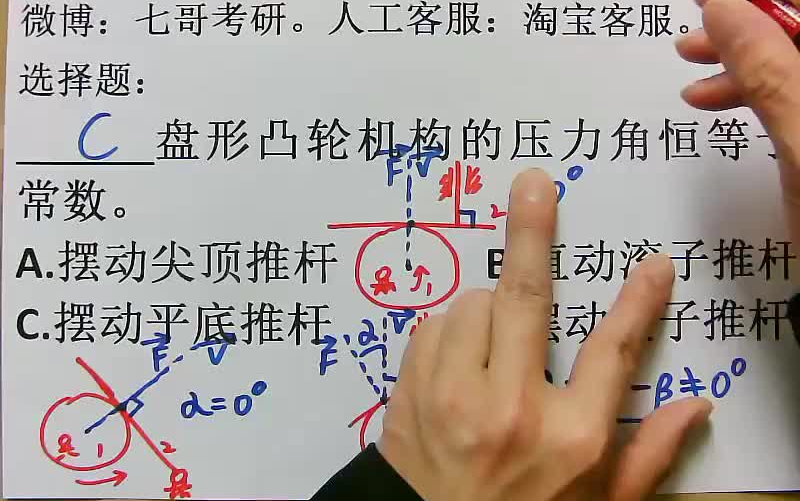 微博：七哥考研。人工客服：淘宝客服。
选择题：
C 盘形凸轮机构的压力角恒等于
常数。
F V
2
0°
A.摆动尖顶推杆
1
B 直动滚子推杆
C.摆动平底推杆
摆动 子推杆
F V
α=0°
1
2
F α V
β≠0°